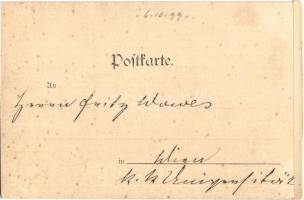 6.10.99.
Postkarte.
An
Herrn Fritz
in Wien
k. k. Universität